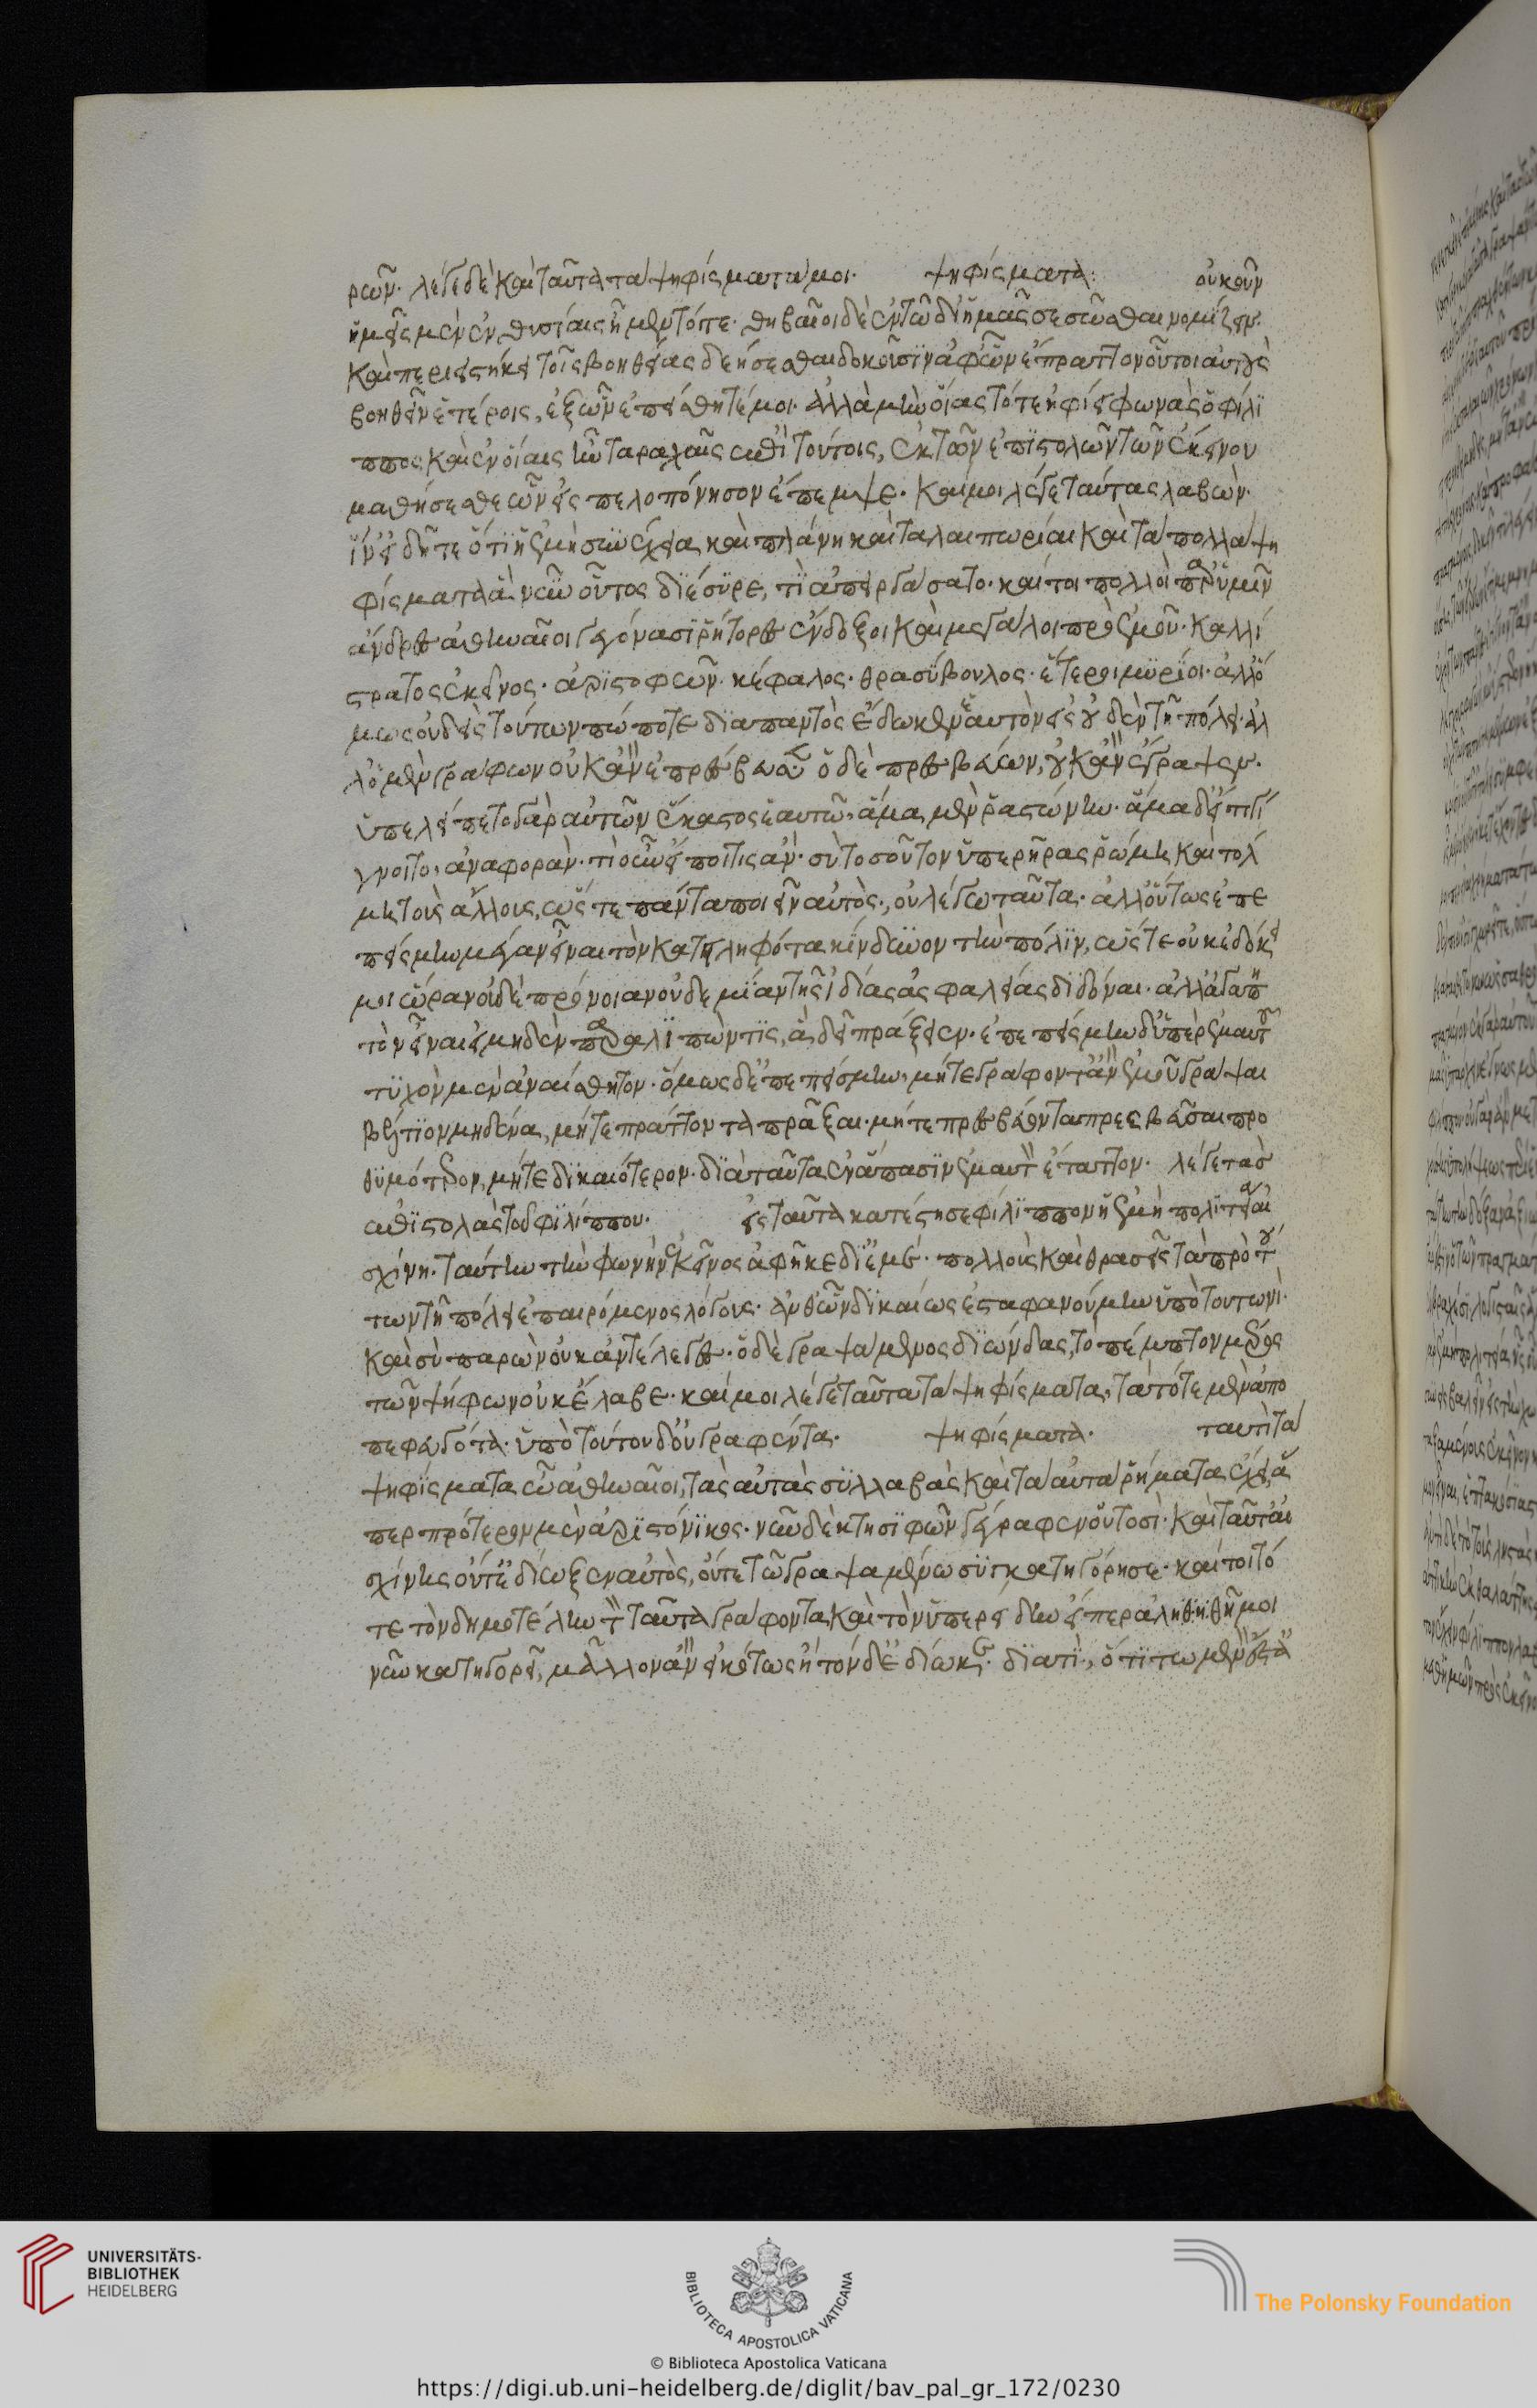 ρῶν. λέγε δὲ καὶ ταῦτα τὰ ψηφίσματά μοι. ψηφίσματα: οὐκοῦν
ἡμεῖς μὲν ἐν θυσίαις ἦμεν τότε. θηβαῖοι δὲ ἐν τῶ δι' ἡμᾶς σεσῶσθαι νομίζειν.
καὶ περιειστήκει τοῖς βοηθείας δεήσεσθαι δοκοῦσιν ἀφ' ὧν ἔπραττον οὗτοι αὐτοὺς
βοηθεῖν ἑτέροις, ἐξ ὧν ἐπείσθητέ μοι. ἀλλὰ μὴν οἵας τότ' ἠφίει φωνὰς ὁ φίλι
ππος καὶ ἐν οἵαις ἦν ταραχαῖς ἐπὶ τούτοις, ἐκ τῶν ἐπιστολῶν τῶν ἐκείνου
μαθήσεσθε ὧν εἰς πελοπόννησον ἔπεμψε. καί μοι λέγε ταύτας λαβών.
ἵν' εἰδῆτε ὅτι ἡ ἐμὴ συνέχεια καὶ πλάνη καὶ ταλαιπωρίαι καὶ τὰ πολλὰ ψη
φίσματα ἃ νῦν οὗτος διέσυρε, τί ἀπειργάσατο. καίτοι πολλοὶ παρ' ὑμῖν
ἄνδρες ἀθηναῖοι γεγόνασι ῥήτορες ἔνδοξοι καὶ μεγάλοι πρὸ ἐμοῦ. καλλί
στρατος ἐκεῖνος. ἀριστοφῶν. κέφαλος. θρασύβουλος. ἕτεροι μυρίοι. ἀλλ' ὅ
μως οὐδεὶς τούτων πώποτε διαπαντὸς ἔδωκεν ἑαυτὸν εἰς οὐδὲν τῆ πόλει. ἀλ
λ' ὁ μὲν γράφων οὐκ ἂν ἐπρέσβευσεν ὁ δὲ πρεσβεύων, οὐκ ἂν ἔγραψεν.
ὑπελείπετο γὰρ αὐτῶν ἕκαστος ἑαυτῶ, ἅμα μὲν ῥαστώνην. ἅμα δ' εἴ τι γί
γνοιτο, ἀναφοράν. τί οὖν εἴποι τις ἄν. σὺ τοσοῦτον ὑπερῆρας ῥώμη καὶ τόλ
μη τοὺς ἄλλους, ὥστε πάντα ποιεῖν αὐτός., οὐ λέγω ταῦτα. ἀλλ' οὕτως ἐπε
πείσμην μέγαν εἶναι τὸν κατειληφότα κίνδυνον τὴν πόλιν, ὥστε οὐκ ἐδόκει
μοι ὥραν οὐδὲ πρόνοιαν οὐδεμίαν τῆς ἰδίας ἀσφαλείας διδόναι. ἀλλ' ἀγαπη
τὸν εἶναι εἰ μηδὲν παραλιπών τις, ἃ δεῖ πράξειεν. ἐπεπείσμην δ' ὑπὲρ ἐμαυτοῦ
τυχὸν μὲν ἀναίσθητον. ὅμως δ' ἐπεπείσμην, μήτε γράφοντ' ἂν ἐμοῦ γράψαι
βέλτιον μηδένα, μήτε πράττοντα πρᾶξαι. μήτε πρεσβεύοντα πρεσβεῦσαι προ
θυμότερον, μήτε δικαιότερον. διὰ ταῦτα ἐν ἅπασιν ἐμαυτὸν ἔταττον. λέγε τὰς
ἐπιστολὰς τὰς φιλίππου. εἰς ταῦτα κατέστησε φίλιππον ἡ ἐμὴ πολιτεία αἰ
σχίνη. ταύτην τὴν φωνὴν ἐκεῖνος ἀφῆκε δι' ἐμέ. πολλοὺς καὶ θρασεῖς τὰ πρὸ τού
των τῆ πόλει ἐπαιρόμενος λόγους. ἀνθ' ὧν δικαίως ἐστεφανούμην ὑπὸ τουτωνί.
καὶ σὺ παρὼν οὐκ ἀντέλεγες. ὁ δὲ γραψάμενος διώνδας, τὸ πέμπτον μέρος
τῶν ψήφων οὐκ ἔλαβε. καί μοι λέγε ταῦτα τὰ ψηφίσματα, τὰ τότε μὲν ἀπο
πεφευγότα. ὑπὸ τούτου δ' οὐ γραφέντα. ψηφίσματα. ταυτὶ τὰ
ψηφίσματα ὦ ἀθηναῖοι, τὰς αὐτὰς συλλαβὰς καὶ τὰ αὐτὰ ῥήματα ἔχει ἅ
περ πρότερον μὲν ἀριστόνικος. νῦν δὲ κτησιφῶν γέγραφεν οὑτοσί. καὶ ταῦτ' αἰ
σχίνης οὔτ' ἐδίωξεν αὐτὸς, οὔτε τῶ γραψαμένω συγκατηγόρησε. καίτοι τό
τε τὸν δημομέλην τὸν ταῦτα γράφοντα καὶ τὸν ὑπερείδην εἴπερ ἀληθῆ μου
νῦν κατηγορεῖ, μᾶλλον ἂν εἰκότως ἢ τόνδε ἐδίωκε. διατί., ὅτι τῶ μὲν ἔστ'